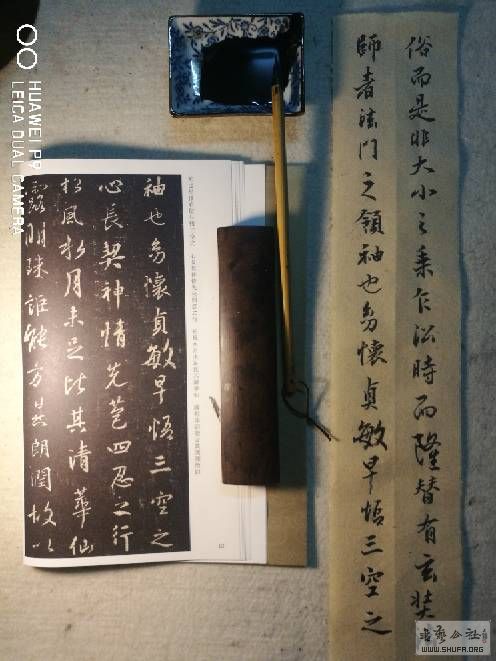 俗而是非大小之乘乍沿時而隆替有玄奘
師者法門之領袖也幼懷貞敏早悟三空之
袖也幼懷貞敏早悟三空之
心長契神情先苞四忍之行
松風水月未足比其清華仙
露明珠詎能方其朗潤故以
HUAWEI P9
LEICA DUAL CAMERA
书艺公社
WWW.SHUFA.ORG